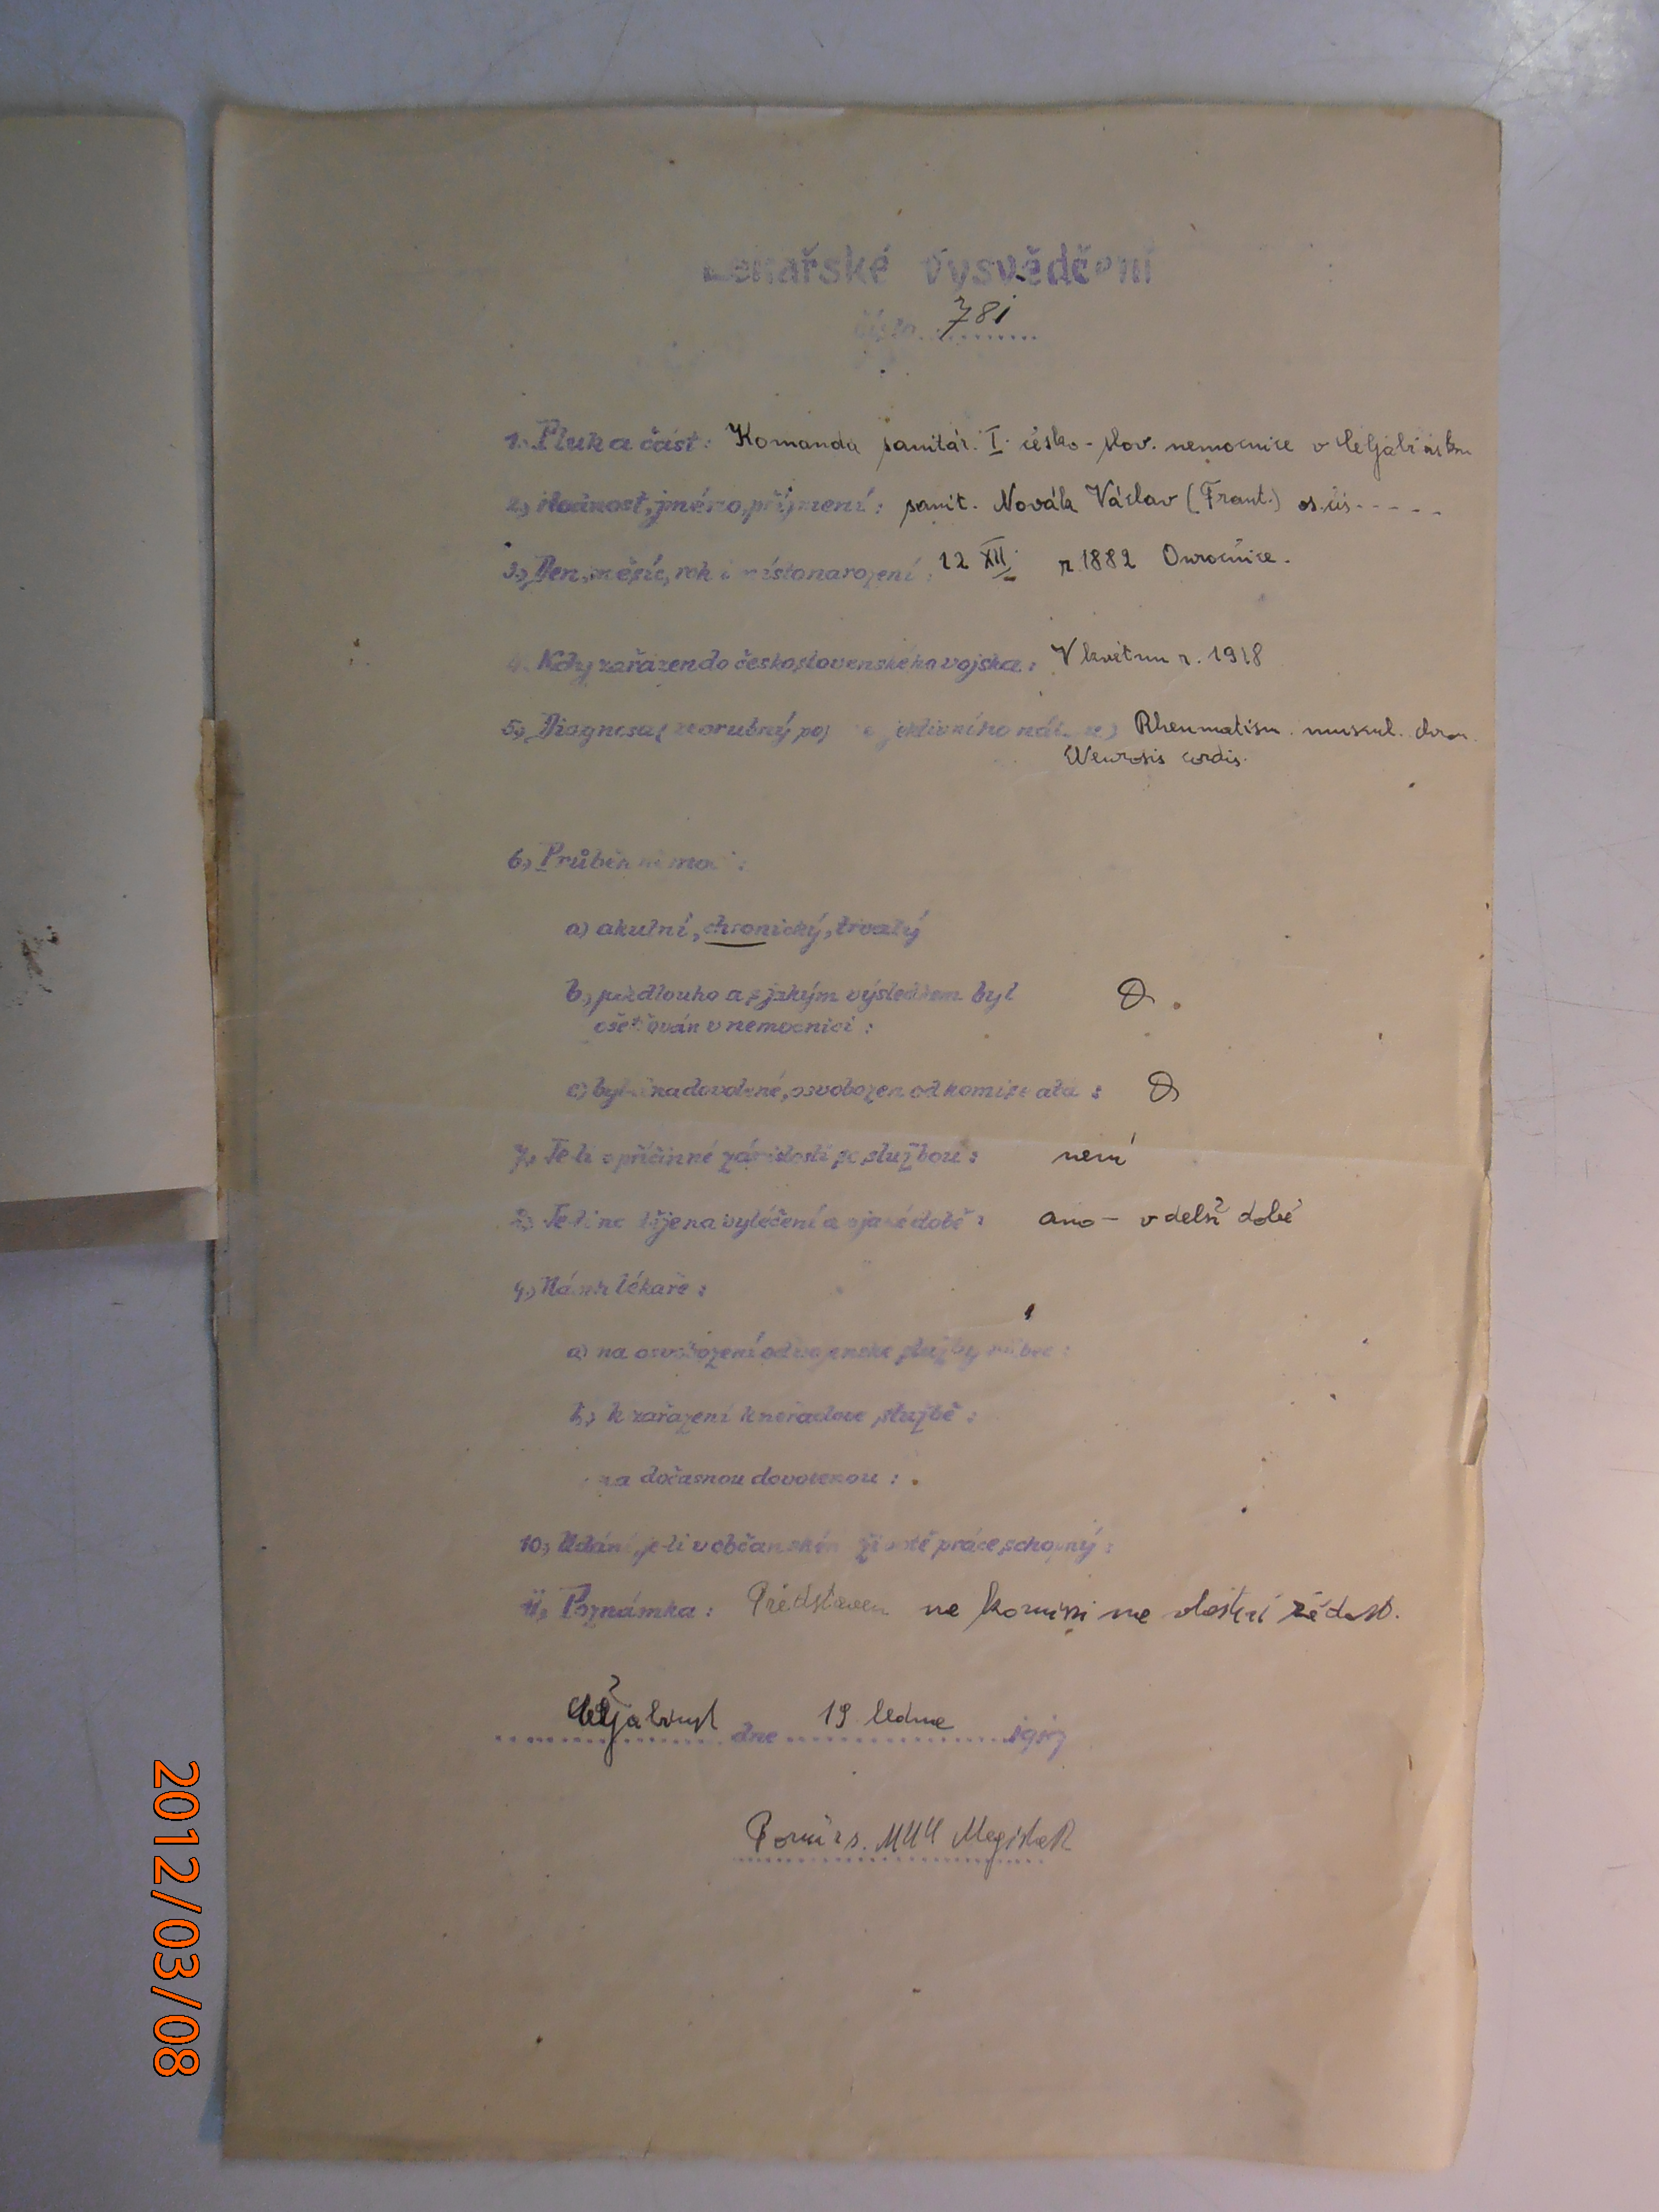 Lékařské vysvědčení
číslo 781
1.) Pluk a část: Komanda sanitár. I. česko-slov. nemocnice v Čeljabinsku
2.) Hodnost, jméno, příjmení: sanit. Novák Václav (Frant.) os. čís. - - - - -
3.) Den, měsíc, rok i místo narození: 12 XII. r. 1882
4. Kdy zařazen do československého vojska: V květnu r. 1918
5.) Diagnosa (: Rheumatism. muskul. chron.
Neurosis cordis.
6.) Průběh nemoci:
a) akutní, chronický, trvalý
b.) jak dlouho a s jakým výsledkem byl
ošetřován v nemocnici:
c) byl-li na dovolené, osvobozen od komise atd:
7.) Je-li v příčinné závislosti se službou: není
8.) Je-li naděje na vyléčení a v jaké době: ano - v delší době
9.) Návrh lékaře:
a) na osvobození od vojenské služby vůbec:
b.) k zařazení k neřadové službě:
na dočasnou dovolenou:
10.) Udání, je-li v občanském životě práce schopný:
11.) Poznámka: Představen na komisi na vlastní žádost.
Čeljabinsk dne 19 ledna 1919
2012/03/08